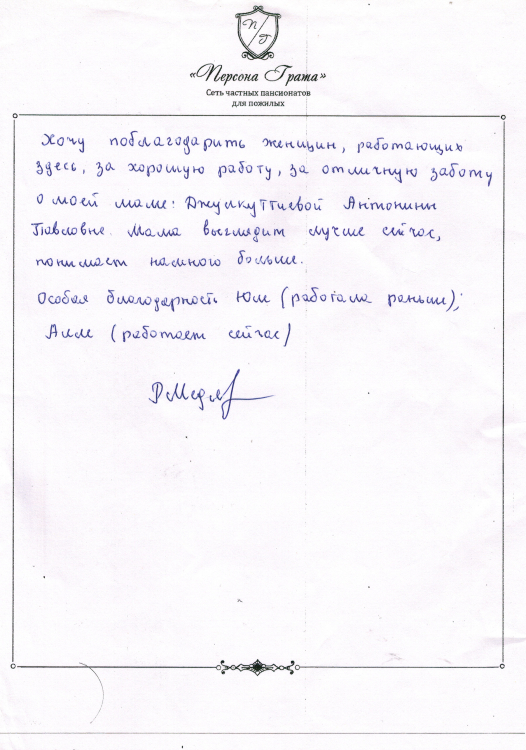 П/Г
«Персона Грата»
Сеть частных пансионатов
для пожилых
Хочу поблагодарить женщин, работающих
здесь, за хорошую работу, за отличную заботу
о моей маме: Антонины
Павловне. Мама выглядит лучше сейчас,
понимает намного больше.
Особая благодарность Юле (работала раньше),
Алле (работает сейчас)